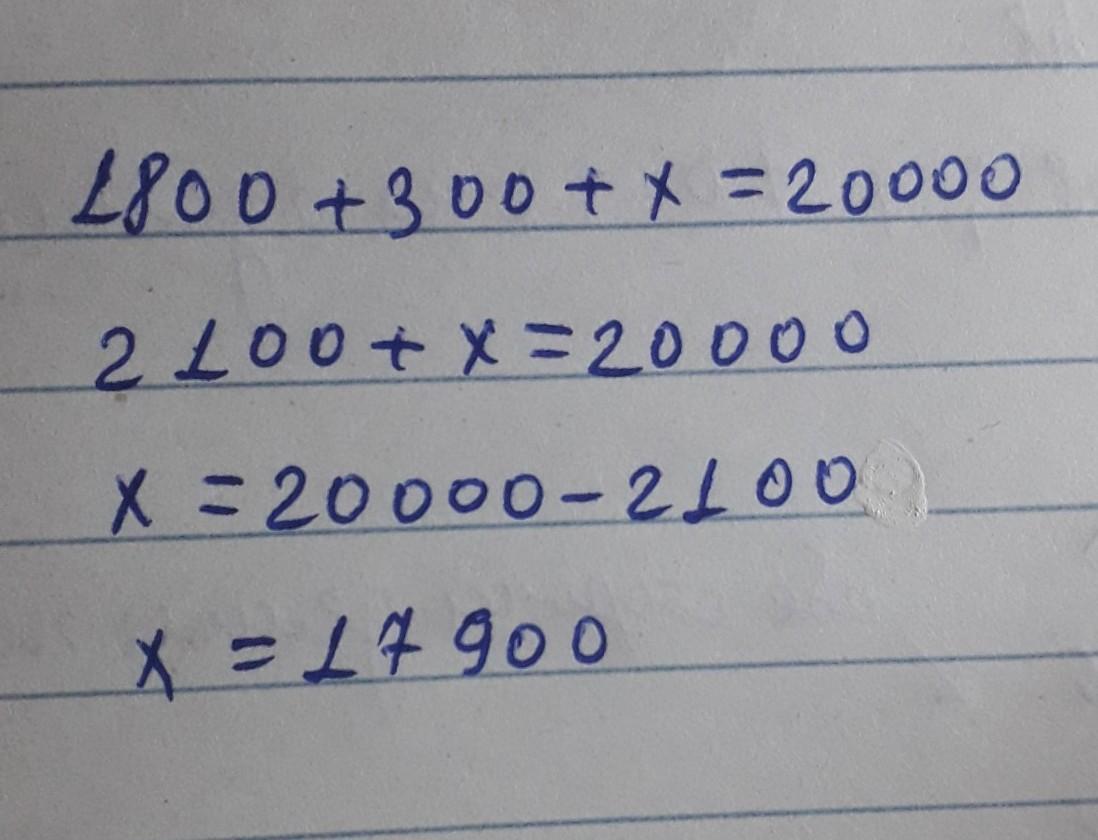 1800+300+x=20000
2100+x=20000
x=20000-2100
x=17900